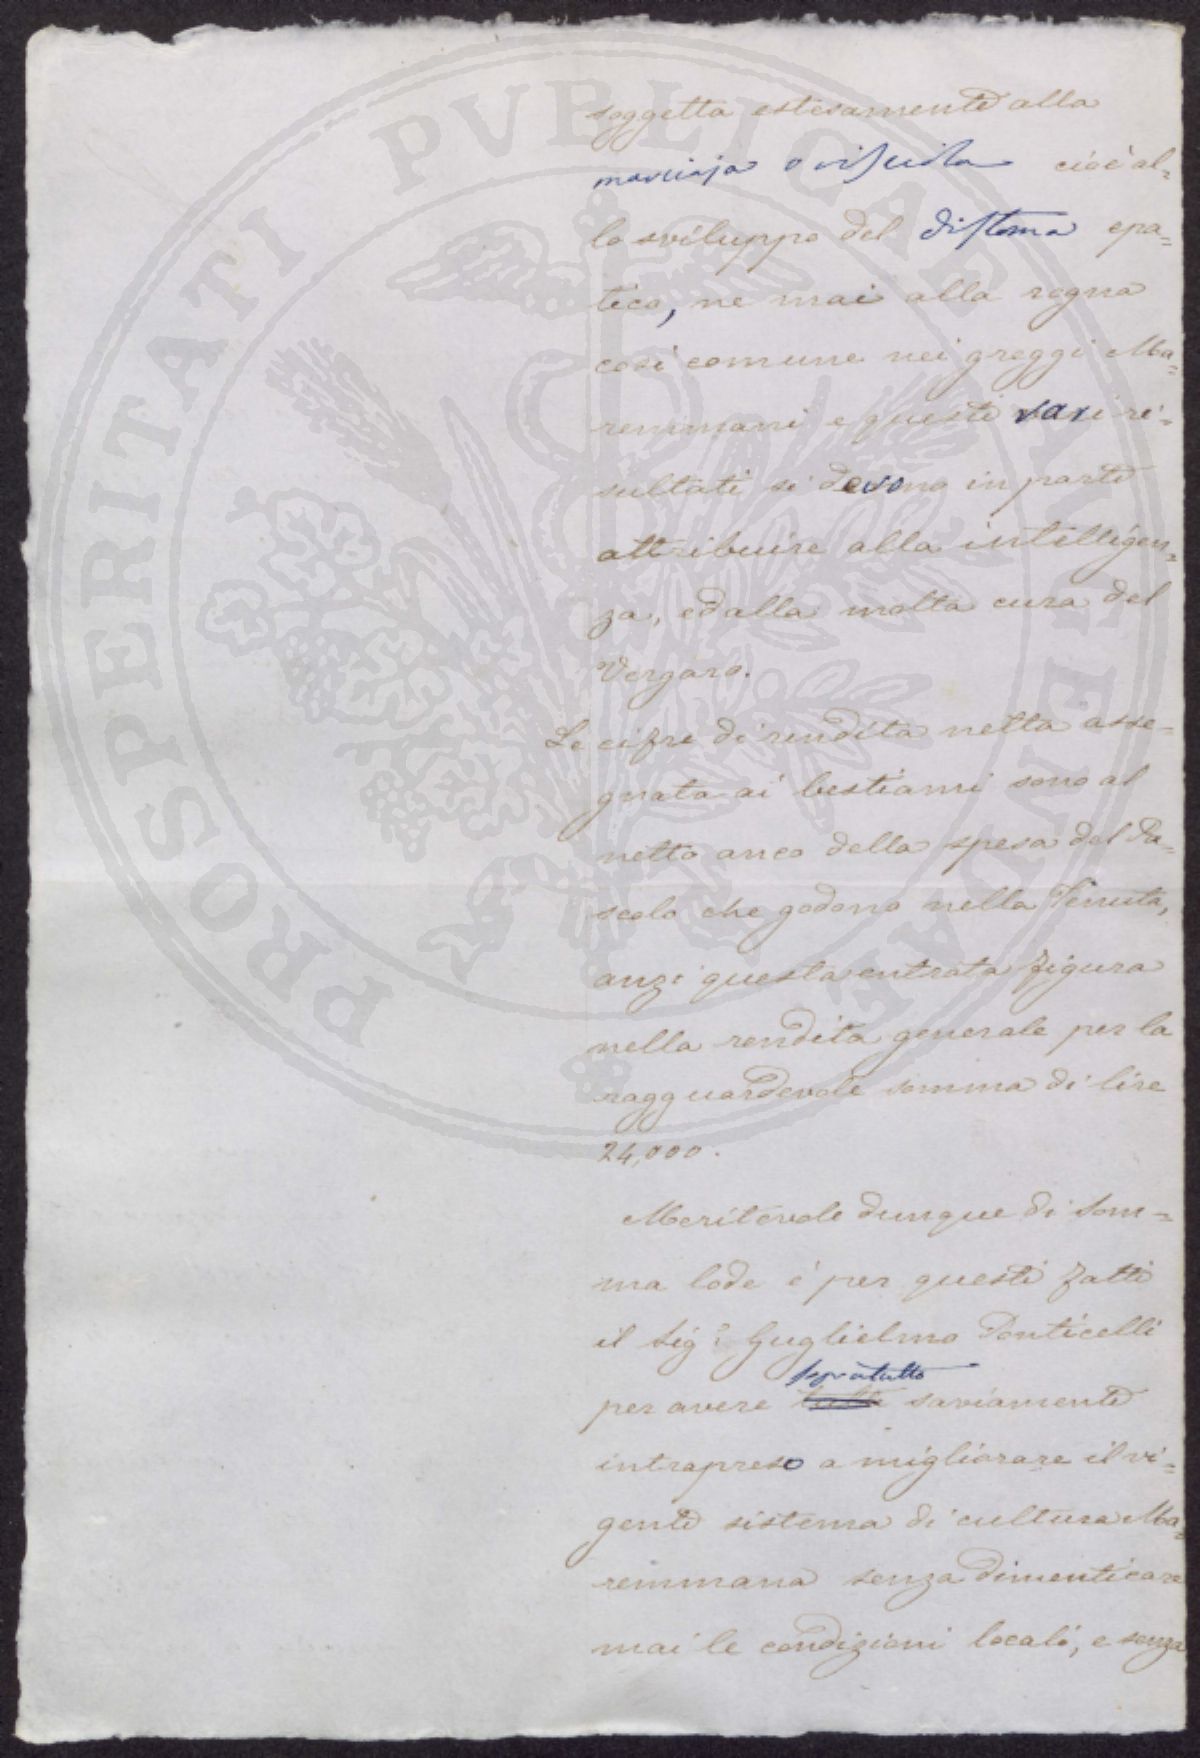 soggetta estesamente alla
marciaja o visciola cioè al=
lo sviluppo del distoma epa=
tico, ne mai alla rogna
così comune nei greggi Ma=
remmani e questi rari re=
sultati si devono in parte
attribuire alla intelligen=
za, ed alla molta cura del
Vergaro.
Le cifre di rendita netta asse=
gnata ai bestiami sono al
netto anco della spesa del Pa=
scolo che godono nella Tenuta,
anzi questa entrata figura
nella rendita generale per la
ragguardevole somma di lire
24,000.
Meritevole dunque di Som=
ma lode é per questi fatti
il Sig.r Guglielmo Ponticelli
sopratutto
per avere tutto saviamente
intrapreso a migliorare il vi=
gente sistema di cultura Ma=
remmana senza dimenticare
mai le condizioni locali, e senza
PROSPERITATI PVBLICAE AVGENDAE